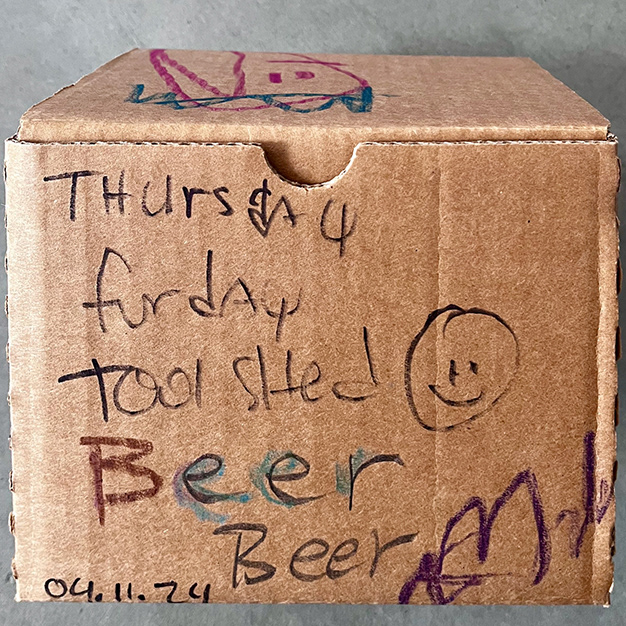 THUrsdAy
furdAy
Tool sHed
Beer
Beer
04.11.24